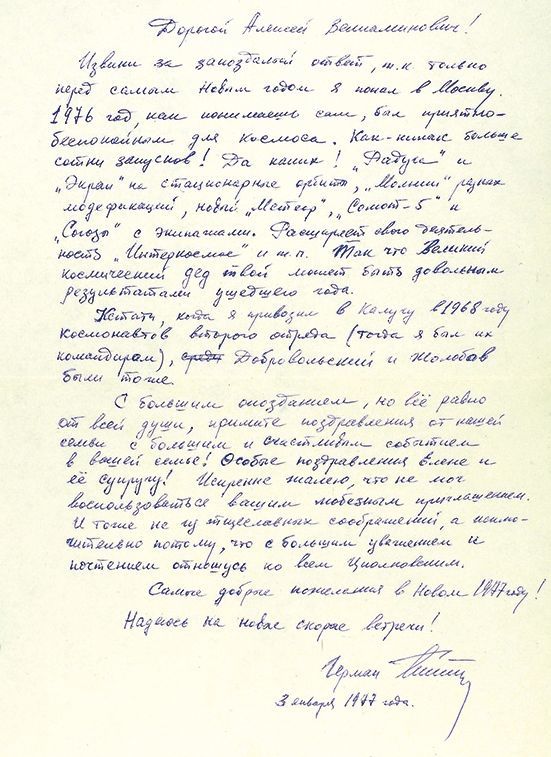 Дорогой Алексей Вениаминович!
Извини за запоздалый ответ, т.к. только
перед самым Новым годом я попал в Москву.
1976 год, как понимаешь сам, был приятно-
беспокойным для космоса. Как-никак больше
сотни запусков! Да каких! „Радуга" и
„Экран" на стационарные орбиты, „Молнии" разных
модефикаций, новый „Метеор", „Салют-5" и
„Союзы" с экипажами. Расширяет свою деятель-
ность „Интеркосмос" и т.п. Так что Великий
космический дед твой может быть довольным
результатами ушедшего года.
Кстати, когда я привозил в Калугу в 1968 году
космонавтов второго отряда (тогда я был их
командирам), среди Добровольский и Жолобов
были тоже.
С большим опозданием, но всё равно
от всей души, примите поздравления от нашей
семьи с большим и счастливым событием
в вашей семье! Особые поздравления Елене и
её супругу! Искренне жалею, что не мог
воспользоваться вашим любезным приглашением.
И тоже не из тщеславных соображений, а исклю-
чительно потому, что с большим уважением и
почтением отношусь ко всем Циолковским.
Самые добрые пожелания в Новом 1977 году!
Надеюсь на новые скорые встречи!
Герман Титов
3 января 1977 года.